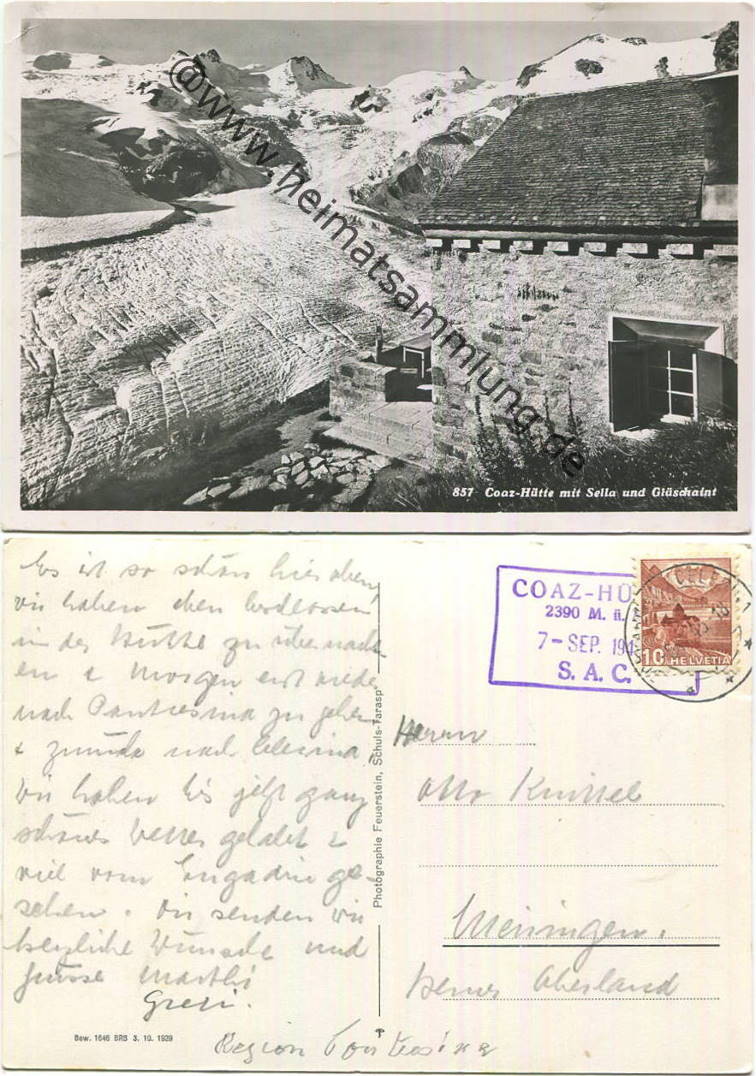 @www.heimatsammlung.de
857 Coaz-Hütte mit Sella und Glüschaint
Es ist so schön hier oben,
wir haben eben beschlossen
in der Hütte zu übernach-
en & Morgen erst wieder
nach Pontresina zu gehen
& zurück nach Celerina,
Wir haben bis jetzt ganz
schönes Wetter gehabt &
viel vom Engadin ge-
sehen. Dir senden wir
herzliche Wünsche und
Grüsse Marthi
Greti.
Photographie Feuerstein, Schuls-Tarasp
COAZ-HÜ
2390 M. ü.
7-SEP. 194
S. A. C.
10 HELVETIA
Herrn
Otto
Meiringen.
Berner Oberland
Bew. 1646 BRB 3. 10. 1939
Region Pontresina